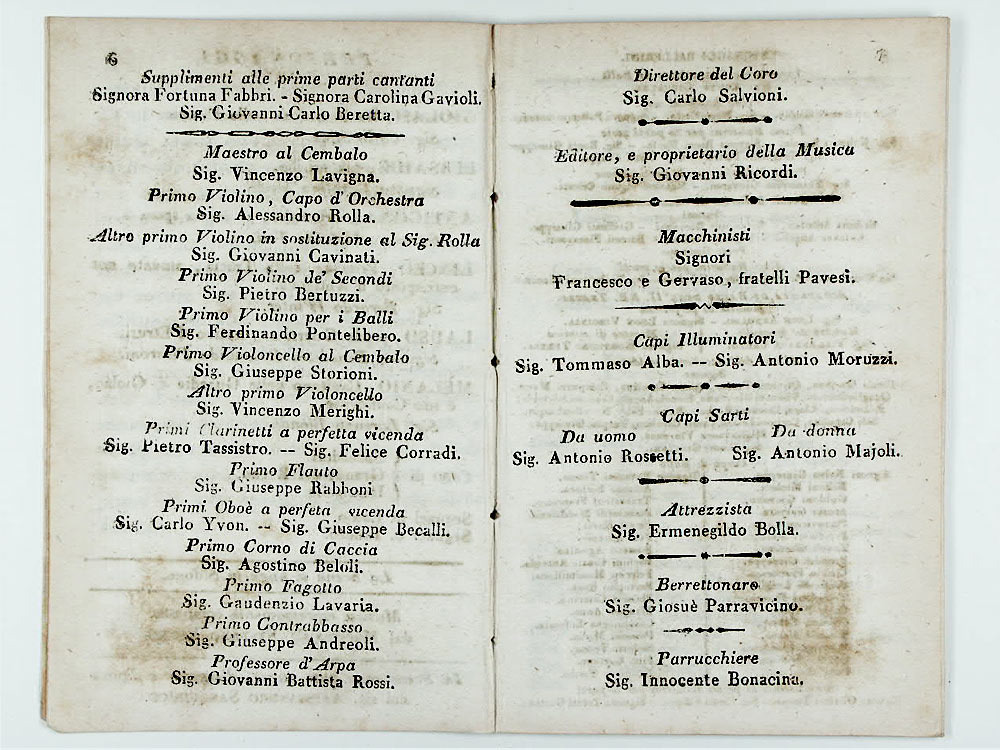 6
Supplimenti alle prime parti cantanti
Signora Fortuna Fabbri. - Signora Carolina Gavioli.
Sig. Giovanni Carlo Beretta.
Maestro al Cembalo
Sig. Vincenzo Lavigna.
Primo Violino, Capo d'Orchestra
Sig. Alessandro Rolla.
Altro primo Violino in sostituzione al Sig. Rolla
Sig. Giovanni Cavinati.
Primo Violino de' Secondi
Sig. Pietro Bertuzzi.
Primo Violino per i Balli
Sig. Ferdinando Pontelibero.
Primo Violoncello al Cembalo
Sig. Giuseppe Storioni.
Altro primo Violoncello
Sig. Vincenzo Merighi.
Primi Clarinetti a perfetta vicenda
Sig. Pietro Tassistro. -- Sig. Felice Corradi.
Primo Flauto
Sig. Giuseppe Rabboni
Primi Oboè a perfeta vicenda
Sig. Carlo Yvon. -- Sig. Giuseppe Becalli.
Primo Corno di Caccia
Sig. Agostino Beloli.
Primo Fagotto
Sig. Gaudenzio Lavaria.
Primo Contrabbasso
Sig. Giuseppe Andreoli.
Professore d'Arpa
Sig. Giovanni Battista Rossi.
7
Direttore del Coro
Sig. Carlo Salvioni.
Editore, e proprietario della Musica
Sig. Giovanni Ricordi.
Macchinisti
Signori
Francesco e Gervaso, fratelli Pavesi.
Capi Illuminatori
Sig. Tommaso Alba. -- Sig. Antonio Moruzzi.
Capi Sarti
Da uomo Da donna
Sig. Antonio Rossetti. Sig. Antonio Majoli.
Attrezzista
Sig. Ermenegildo Bolla.
Berrettonaro
Sig. Giosuè Parravicino.
Parrucchiere
Sig. Innocente Bonacina.